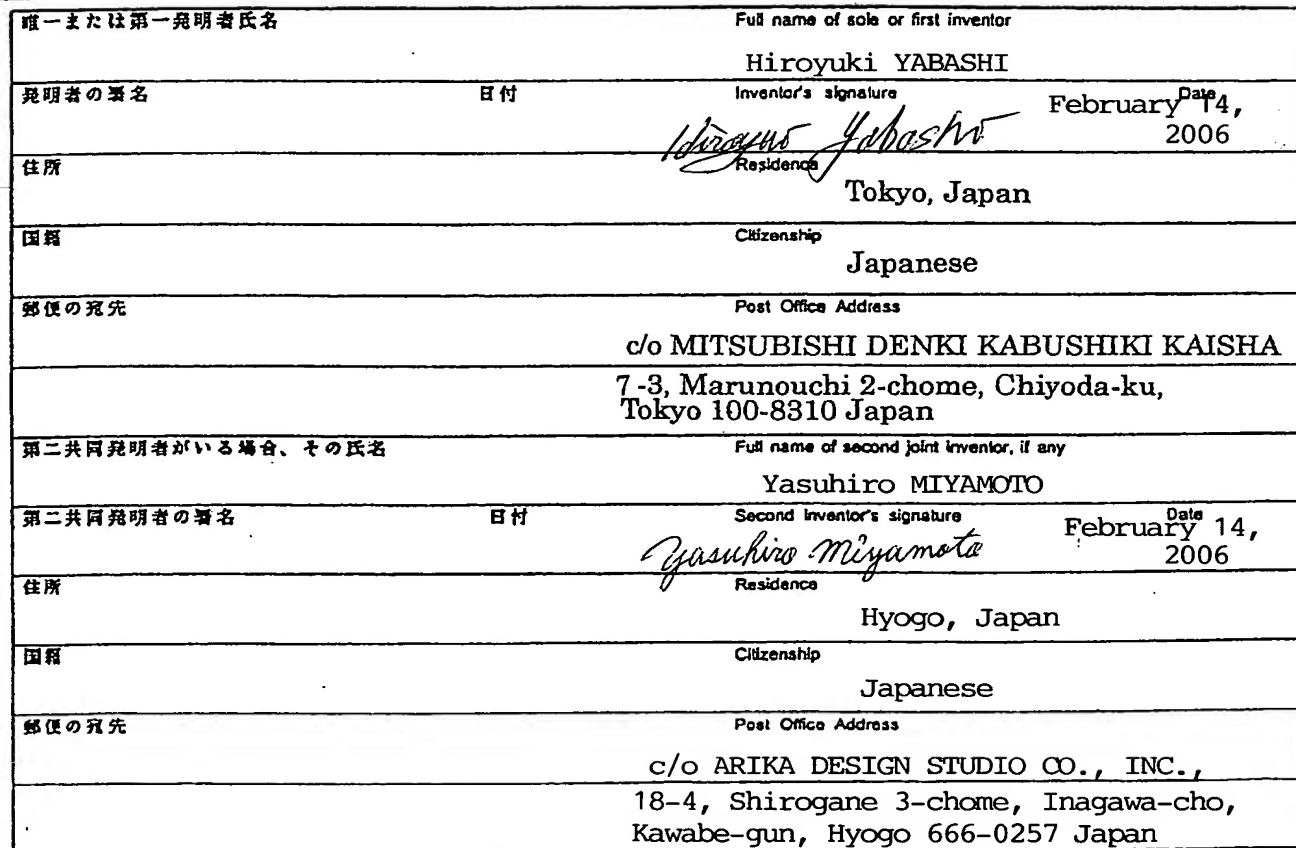 唯一または第一発明者氏名 Full name of sole or first inventor
Hiroyuki YABASHI
発明者の署名 日付 Inventor's signature Date
February 14,
2006
Hiroyuki Yabashi
住所 Residence
Tokyo, Japan
国籍 Citizenship
Japanese
郵便の宛先 Post Office Address
c/o MITSUBISHI DENKI KABUSHIKI KAISHA
7-3, Marunouchi 2-chome, Chiyoda-ku,
Tokyo 100-8310 Japan
第二共同発明者がいる場合、その氏名 Full name of second joint inventor, if any
Yasuhiro MIYAMOTO
第二共同発明者の署名 日付 Second inventor's signature Date
February 14,
2006
Yasuhiro Miyamoto
住所 Residence
Hyogo, Japan
国籍 Citizenship
Japanese
郵便の宛先 Post Office Address
c/o ARIKA DESIGN STUDIO CO., INC.,
18-4, Shirogane 3-chome, Inagawa-cho,
Kawabe-gun, Hyogo 666-0257 Japan